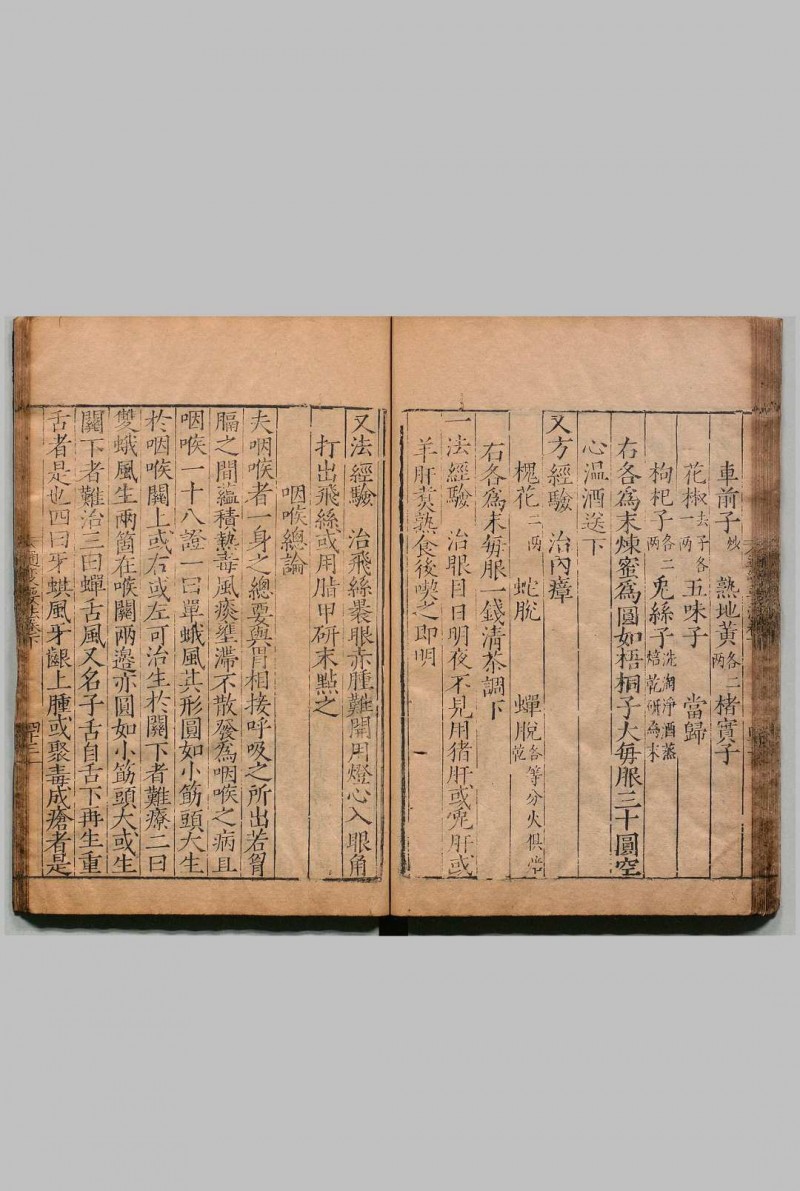 車前子炒　熟地黄各二両　楮實子
花椒去子各一両　五味子　當歸
枸杞子各二両　兎絲子洗淘淨酒蒸焙乾研為末
右各爲末煉蜜爲圓如梧桐子大毎服三十圓空
心温酒送下
又方經驗　治內瘴
槐花二両　蛇脫　蟬脫
右各爲末毎服一錢清茶調下
一法經驗　治眼目日明夜不見用猪肝或兎肝或
羊肝煑熟食後喫之即明
又法經驗　治飛絲眯眼赤腫難開用燈心入眼角
打出飛絲或用脂甲研末點之
咽喉總論
夫咽喉者一身之總要與胃相接呼吸之所出若胷
膈之間蘊積熱毒風痰壅滯不散發爲咽喉之病且
咽喉一十八證一曰單蛾風其形圓如小筯頭大生
於咽喉關上或右或左可治生於關下者難療二曰
雙蛾風生兩箇在喉關兩邊亦圓如小筯頭大或生
關下者難治三曰蟬舌風又名子舌自舌下再生重
舌者是也四曰牙蜞風牙齦上腫或聚毒成瘡者是